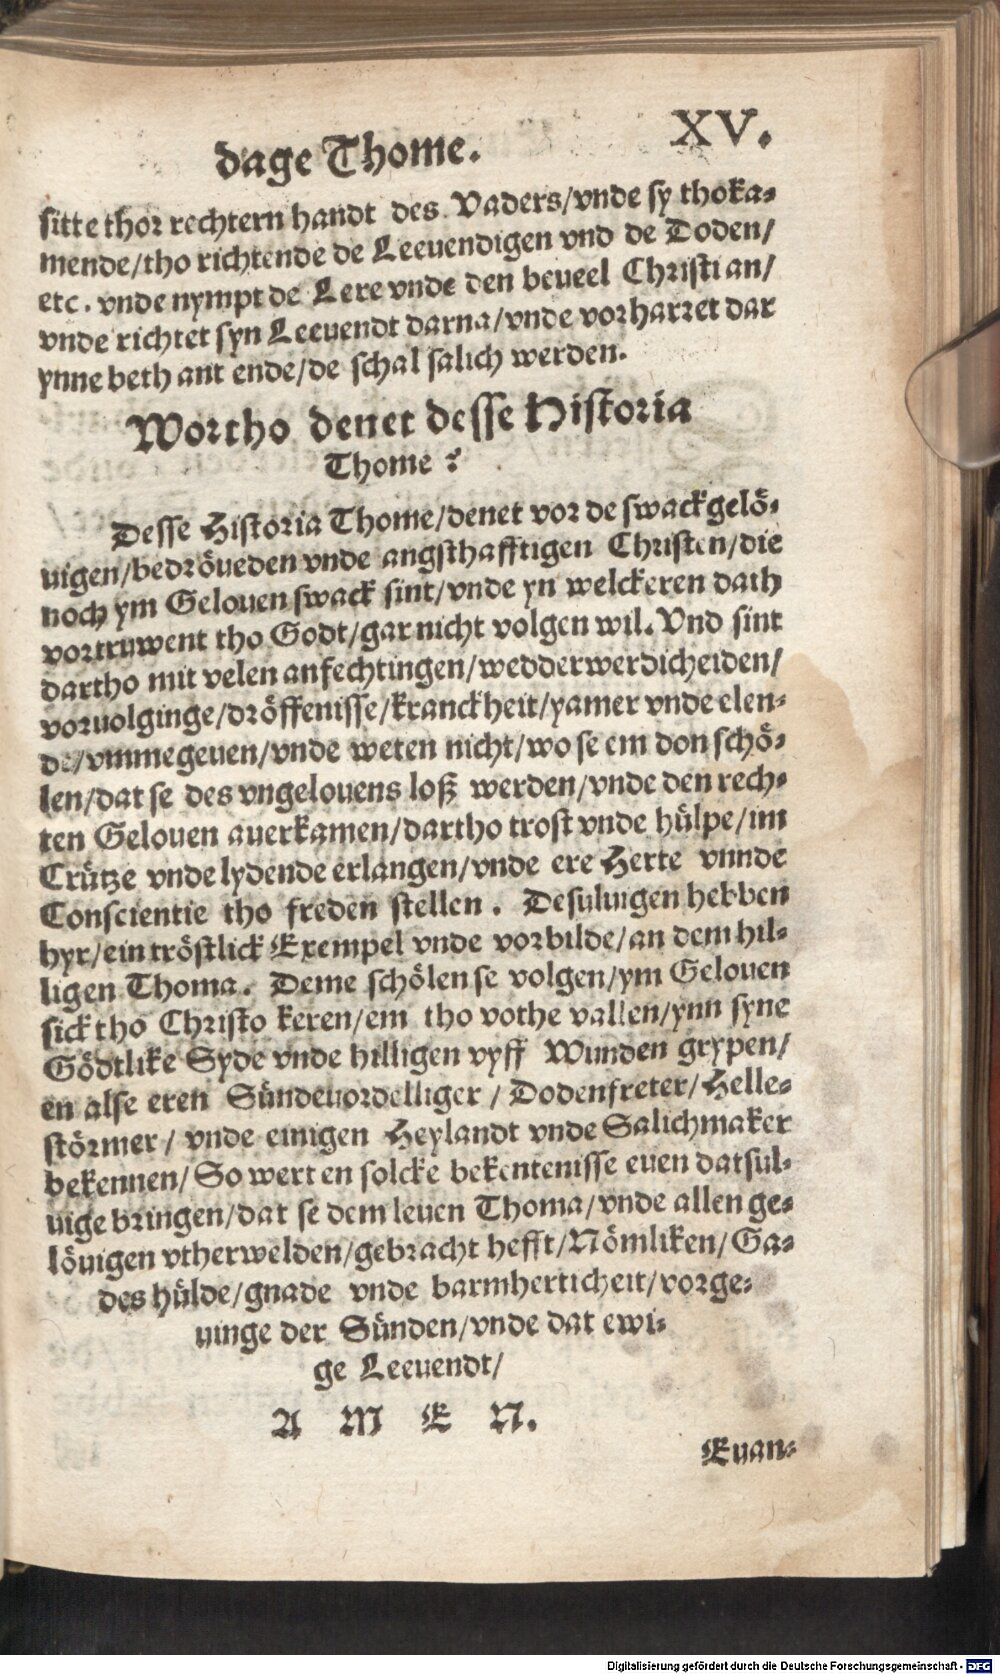 dage Thome. XV.
sitte thor rechtern handt des Vaders/vnde sy thoka-
mende/tho richtende de Leeuendigen vnd de Doden/
etc. vnde nympt de Lere vnde den beueel Christi an/
vnde richtet syn Leeuendt darna/vnde vorharret dar
ynne beth ant ende/de schal salich werden.
Wortho denet desse Historia
Thome?
Desse Historia Thome/denet vor de swackgelö-
uigen/bedröueden vnde angsthafftigen Christen/die
noch ym Gelouen swack sint/vnde yn welckeren dath
vortruwent tho Godt/gar nicht volgen wil. Vnd sint
dartho mit velen anfechtingen/wedderwerdicheiden/
voruolginge/dröffenisse/kranckheit/yamer vnde elen-
de/vmmegeuen/vnde weten nicht/wo se em don schö-
len/dat se des vngelouens loß werden/vnde den rech-
ten Gelouen auerkamen/dartho trost vnde hülpe/im
Crütze vnde lydende erlangen/vnde ere Herte vnnde
Conscientie tho freden stellen. Desuluigen hebben
hyr/ein tröstlick Exempel vnde vorbilde/an dem hil-
ligen Thoma. Deme schölen se volgen/ym Gelouen
sick tho Christo keren/em tho vothe vallen/ynn syne
Gödtlike Syde vnde hilligen vyff Wunden grypen/
en alse eren Sündeuordelliger/Dodenfreter/Helle-
störmer/vnde einigen Heylandt vnde Salichmaker
bekennen/So wert en solcke bekentenisse euen datsul-
uige bringen/dat se dem leuen Thoma/vnde allen ge-
löuigen vtherwelden/gebracht hefft/Nömliken/Ga-
des hülde/gnade vnde barmherticheit/vorge-
uinge der Sünden/vnde dat ewi-
ge Leeuendt/
A M E N.
Euan-
Digitalisierung gefördert durch die Deutsche Forschungsgemeinschaft - DFG